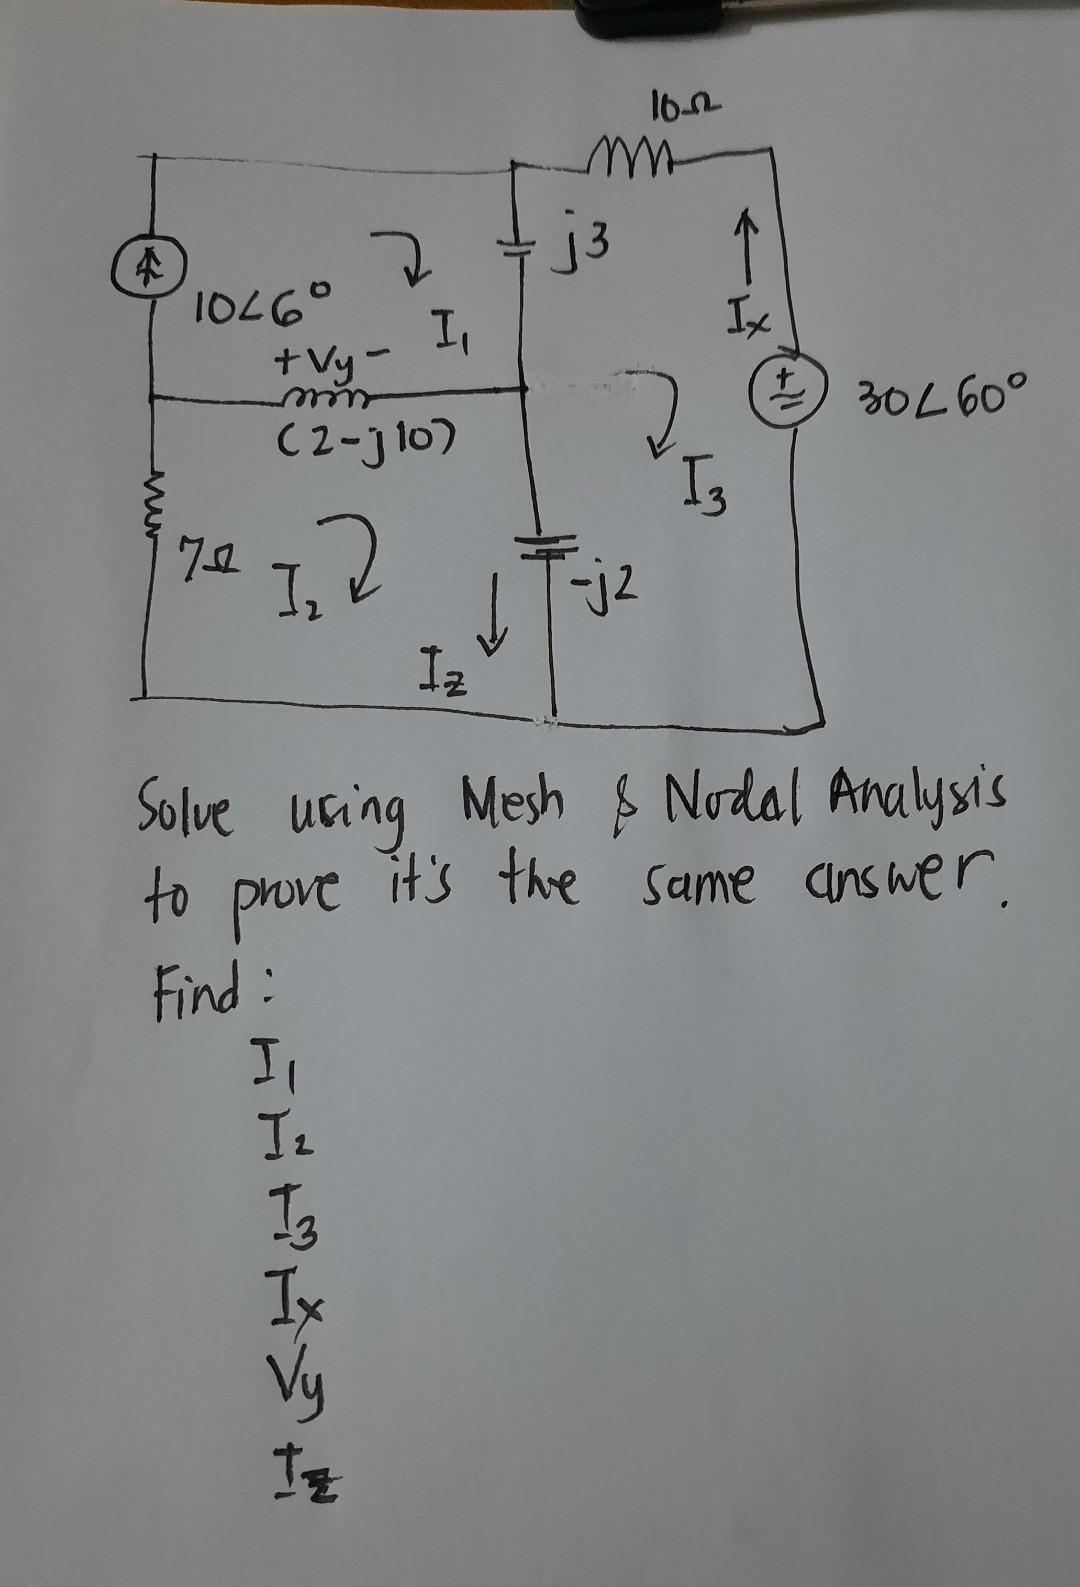 10Ω
j3
10∠6°
I₁
Ix
+ Vy -
(2-j10)
+
30∠60°
I₃
7Ω
I₂
-j2
Iz
Solve using Mesh & Nodal Analysis
to prove it's the same answer.
Find :
I₁
I₂
I₃
Ix
Vy
Iz